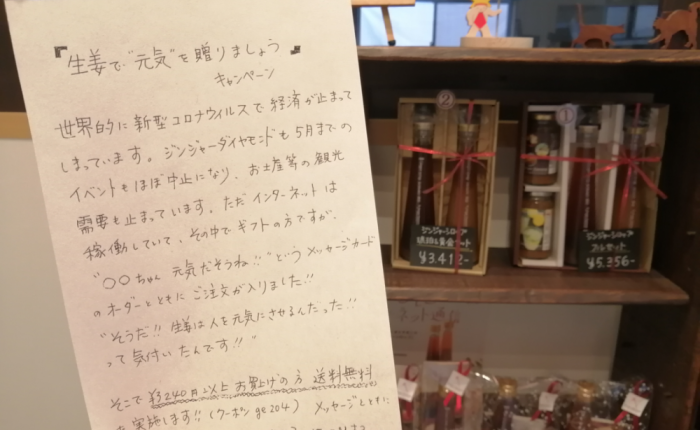 『生姜で"元気"を贈りましょう』
キャンペーン
世界的に新型コロナウィルスで経済が止まって
しまっています。ジンジャーダイヤモンドも5月までの
イベントもほぼ中止になり、お土産等の観光
需要も止まっています。ただインターネットは
稼働していて、その中でギフトの方ですが、
"○○ちゃん 元気だそうね!!"というメッセージカード
のオーダーとともにご注文が入りました!!
"そうだ!! 生姜は人を元気にさせるんだった!!
って気付いたんです!!"
そこで¥3240円以上お買上げの方 送料無料
を実施します!!(クーポン ge204) メッセージとともに
②
①
ジンジャーシロップ
琥珀&黄金セット
¥3.412-
ジンジャーシロップ
フルセット
¥5.356-